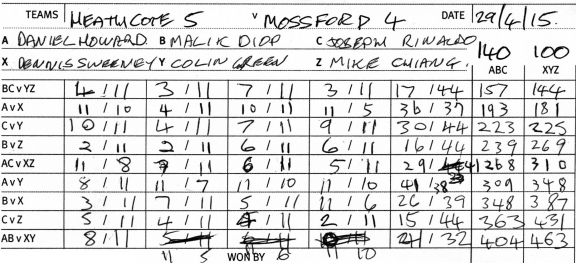 TEAMS HEATHCOTE 5 V MOSSFORD 4 DATE 29/4/15.
A DANIEL HOWARD B MALIK DIOP C JOSEPH RINALDO 140 100
X DENNIS SWEENEY Y COLIN GREEN Z MIKE CHIANG. ABC XYZ
BCvYZ 4/11 3/11 7/11 3/11 17/44 157 144
AvX 11/10 4/11 10/11 11/5 36/37 193 181
CvY 10/11 4/11 7/11 9/11 30/44 223 225
BvZ 2/11 2/11 6/11 6/11 16/44 239 269
ACvXZ 11/8 7/11 6/11 5/11 29/41 268 310
AvY 8/11 11/7 11/10 11/10 41/38 309 348
BvX 3/11 7/11 5/11 11/6 26/39 348 387
CvZ 5/11 4/11 4/11 2/11 15/44 363 431
ABvXY 8/11 41/32 404 463
11 5 WON BY 11 6 11 10